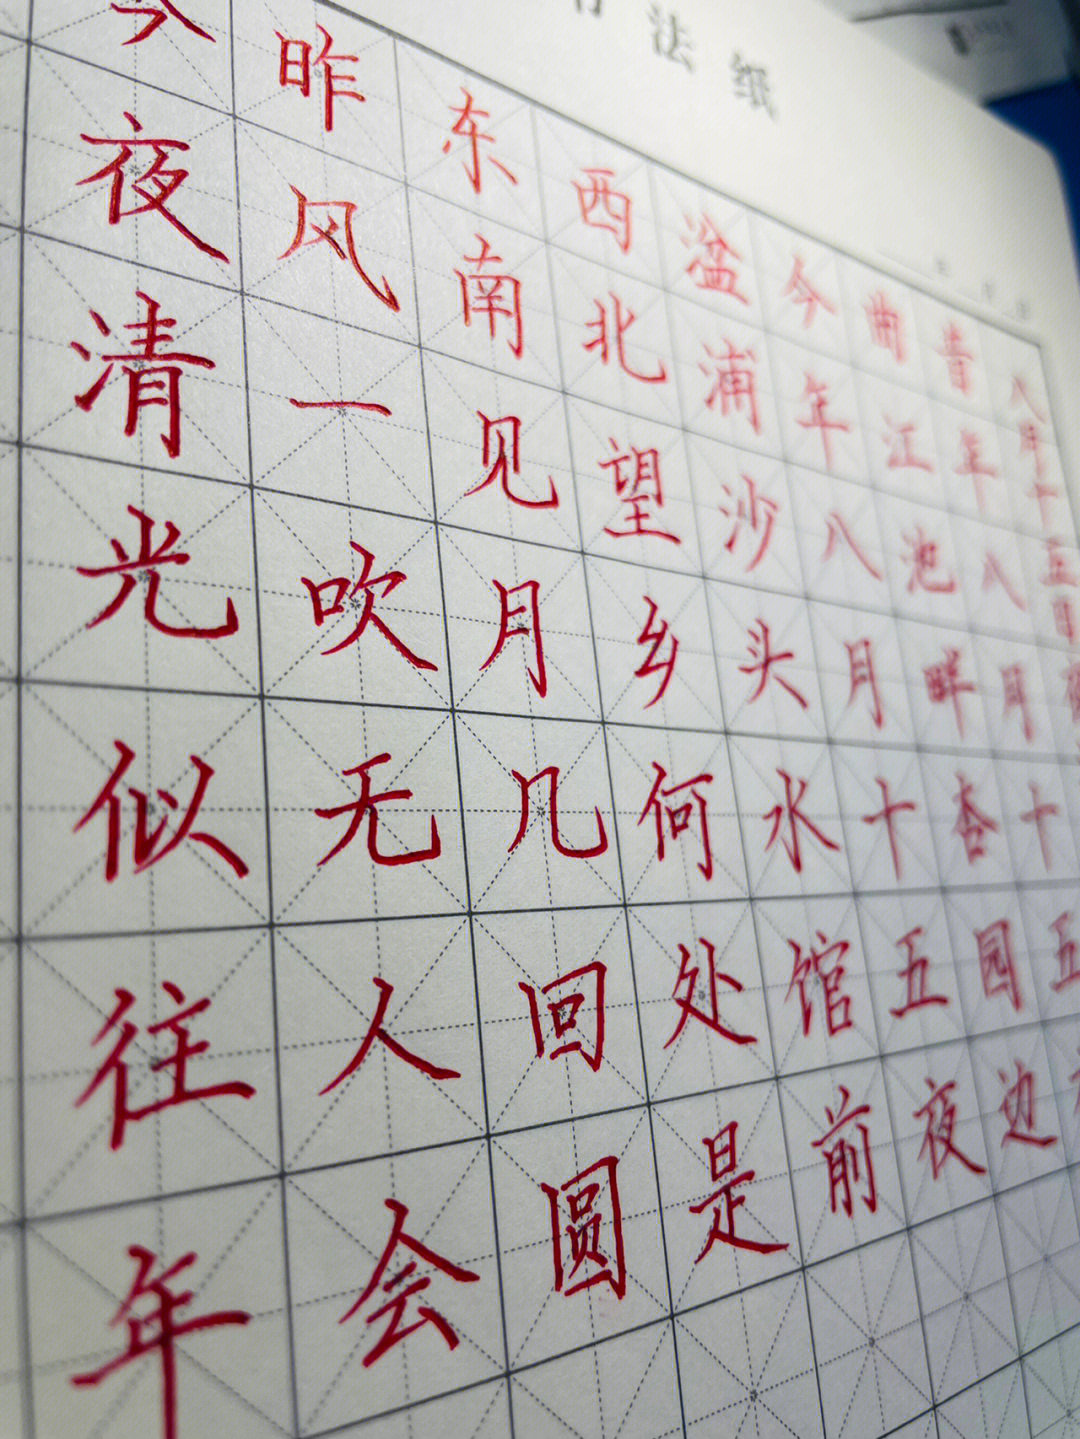 法纸
八月十五日夜
昔年八月十五
曲江池畔杏园边
今年八月十五夜
湓浦沙头水馆前
西北望乡何处是
东南见月几回圆
昨风一吹无人会
今夜清光似往年